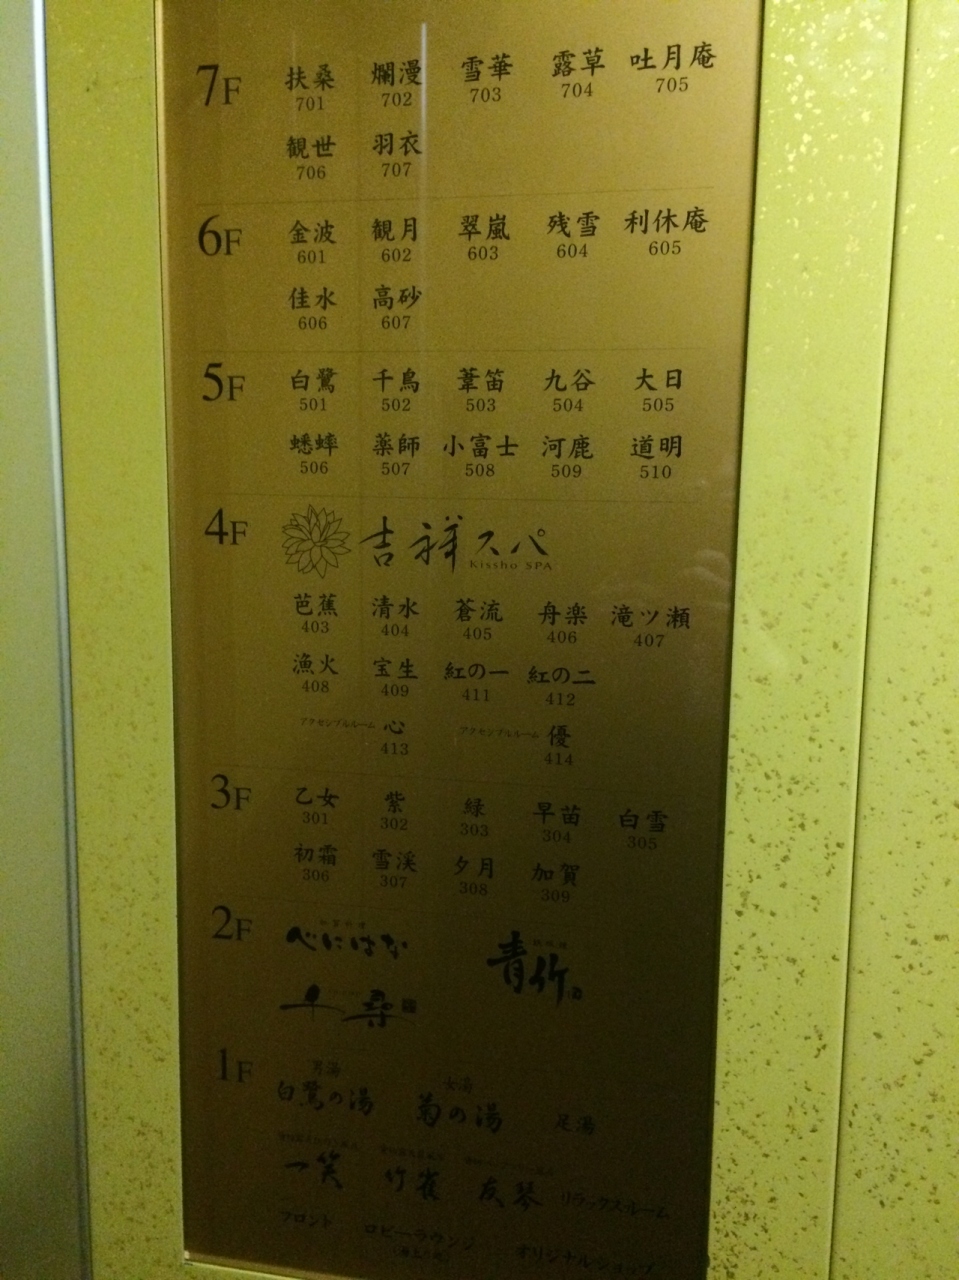 7F 扶桑 爛漫 雪華 露草 吐月庵
701 702 703 704 705
観世 羽衣
706 707
6F 金波 観月 翠嵐 残雪 利休庵
601 602 603 604 605
佳水 高砂
606 607
5F 白鷺 千鳥 葦笛 九谷 大日
501 502 503 504 505
蟋蟀 薬師 小富士 河鹿 道明
506 507 508 509 510
4F 吉祥スパ
Kissho SPA
芭蕉 清水 蒼流 舟楽 滝ツ瀬
403 404 405 406 407
漁火 宝生 紅の一 紅の二
408 409 411 412
アクセシブルルーム 心 アクセシブルルーム 優
413 414
3F 乙女 紫 緑 早苗 白雪
301 302 303 304 305
初霜 雪渓 夕月 加賀
306 307 308 309
2F べにはな 青竹
桑
1F 男湯 女湯
白鷺の湯 菊の湯 足湯
一笑 竹雀 友琴 リラックスルーム
フロント ロビーラウンジ オリジナルショップ